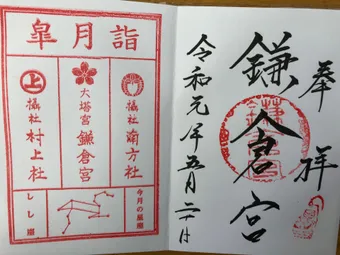 奉拝
鎌倉宮
令和元年五月二十日
皐月詣
摂社
南方社
大塔宮
鎌倉宮
上
摂社
村上社
今月の星座
しし座